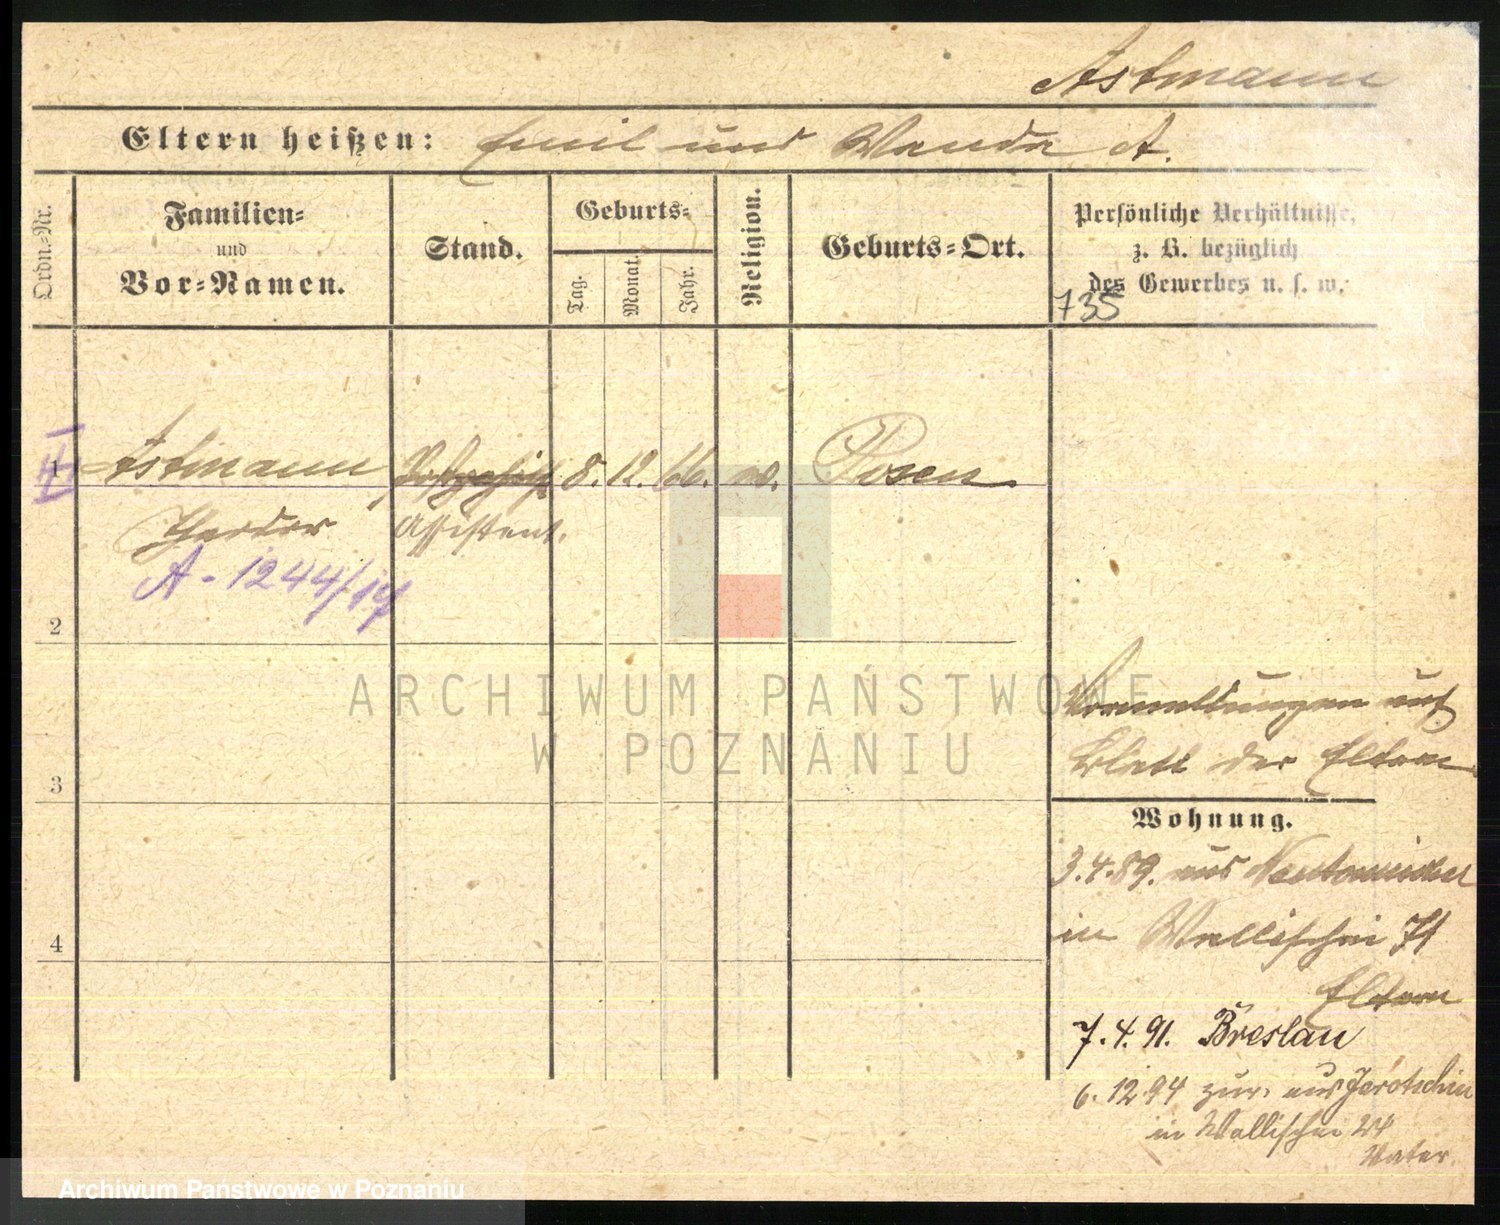 Astmann
Eltern heißen: Emil und Wanda A.
Ordn.-Nr.
Familien-
und
Vor-Namen.
Stand.
Geburts-
Tag.
Monat.
Jahr.
Religion.
Geburts-Ort.
Persönliche Verhältnisse,
z. B. bezüglich
des Gewerbes u. s. w.
735
1 Astmann 8. 12. 66. Posen
Assistent.
A-1244/17
2
3
4
Vermeldungen auf
Blatt der Eltern
Wohnung.
3.4.89. aus
in Wallischei 71
Eltern
7.4.91. Breslau
6.12 94 zur. aus Jarotschin
in Wallischei
Vater
ARCHIWUM PAŃSTWOWE
W POZNANIU
Archiwum Państwowe w Poznaniu